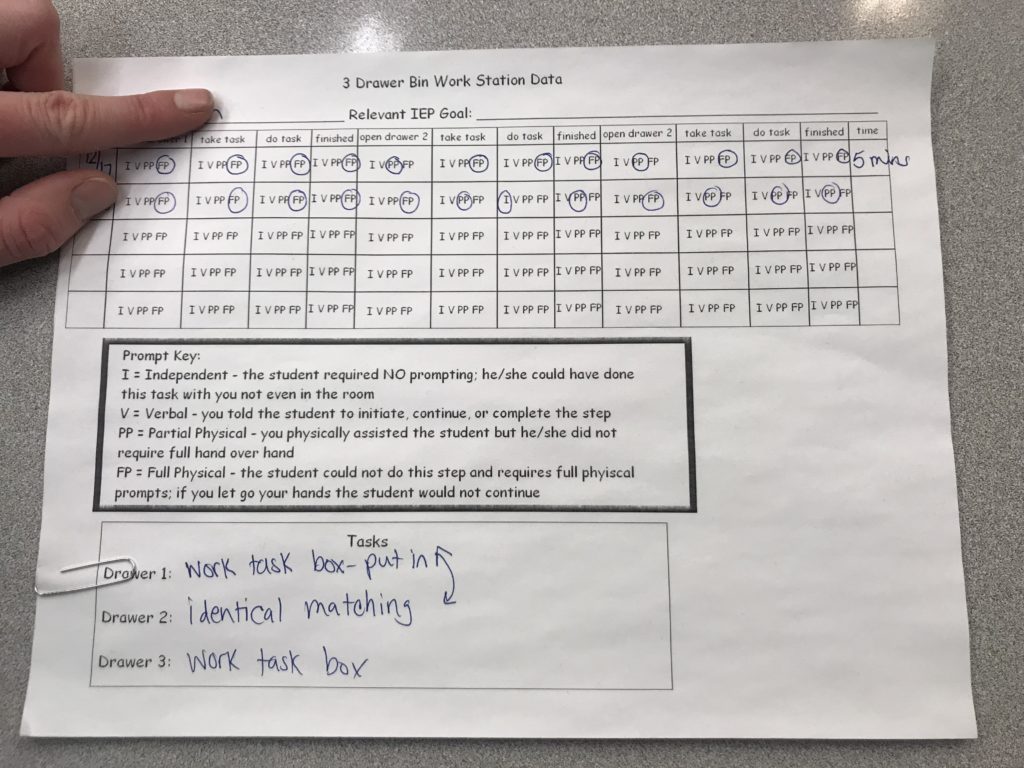 3 Drawer Bin Work Station Data
Relevant IEP Goal:
take task do task finished open drawer 2 take task do task finished open drawer 2 take task do task finished time
12/17 I V PP FP I V PP FP I V PP FP I V PP FP I V PP FP I V PP FP I V PP FP I V PP FP I V PP FP I V PP FP I V PP FP I V PP FP 5 mins
I V PP FP I V PP FP I V PP FP I V PP FP I V PP FP I V PP FP I V PP FP I V PP FP I V PP FP I V PP FP I V PP FP I V PP FP
I V PP FP I V PP FP I V PP FP I V PP FP I V PP FP I V PP FP I V PP FP I V PP FP I V PP FP I V PP FP I V PP FP I V PP FP
I V PP FP I V PP FP I V PP FP I V PP FP I V PP FP I V PP FP I V PP FP I V PP FP I V PP FP I V PP FP I V PP FP I V PP FP
I V PP FP I V PP FP I V PP FP I V PP FP I V PP FP I V PP FP I V PP FP I V PP FP I V PP FP I V PP FP I V PP FP I V PP FP
Prompt Key:
I = Independent - the student required NO prompting; he/she could have done
this task with you not even in the room
V = Verbal - you told the student to initiate, continue, or complete the step
PP = Partial Physical - you physically assisted the student but he/she did not
require full hand over hand
FP = Full Physical - the student could not do this step and requires full phyiscal
prompts; if you let go your hands the student would not continue
Tasks
Drawer 1: work task box - put in
Drawer 2: identical matching
Drawer 3: work task box